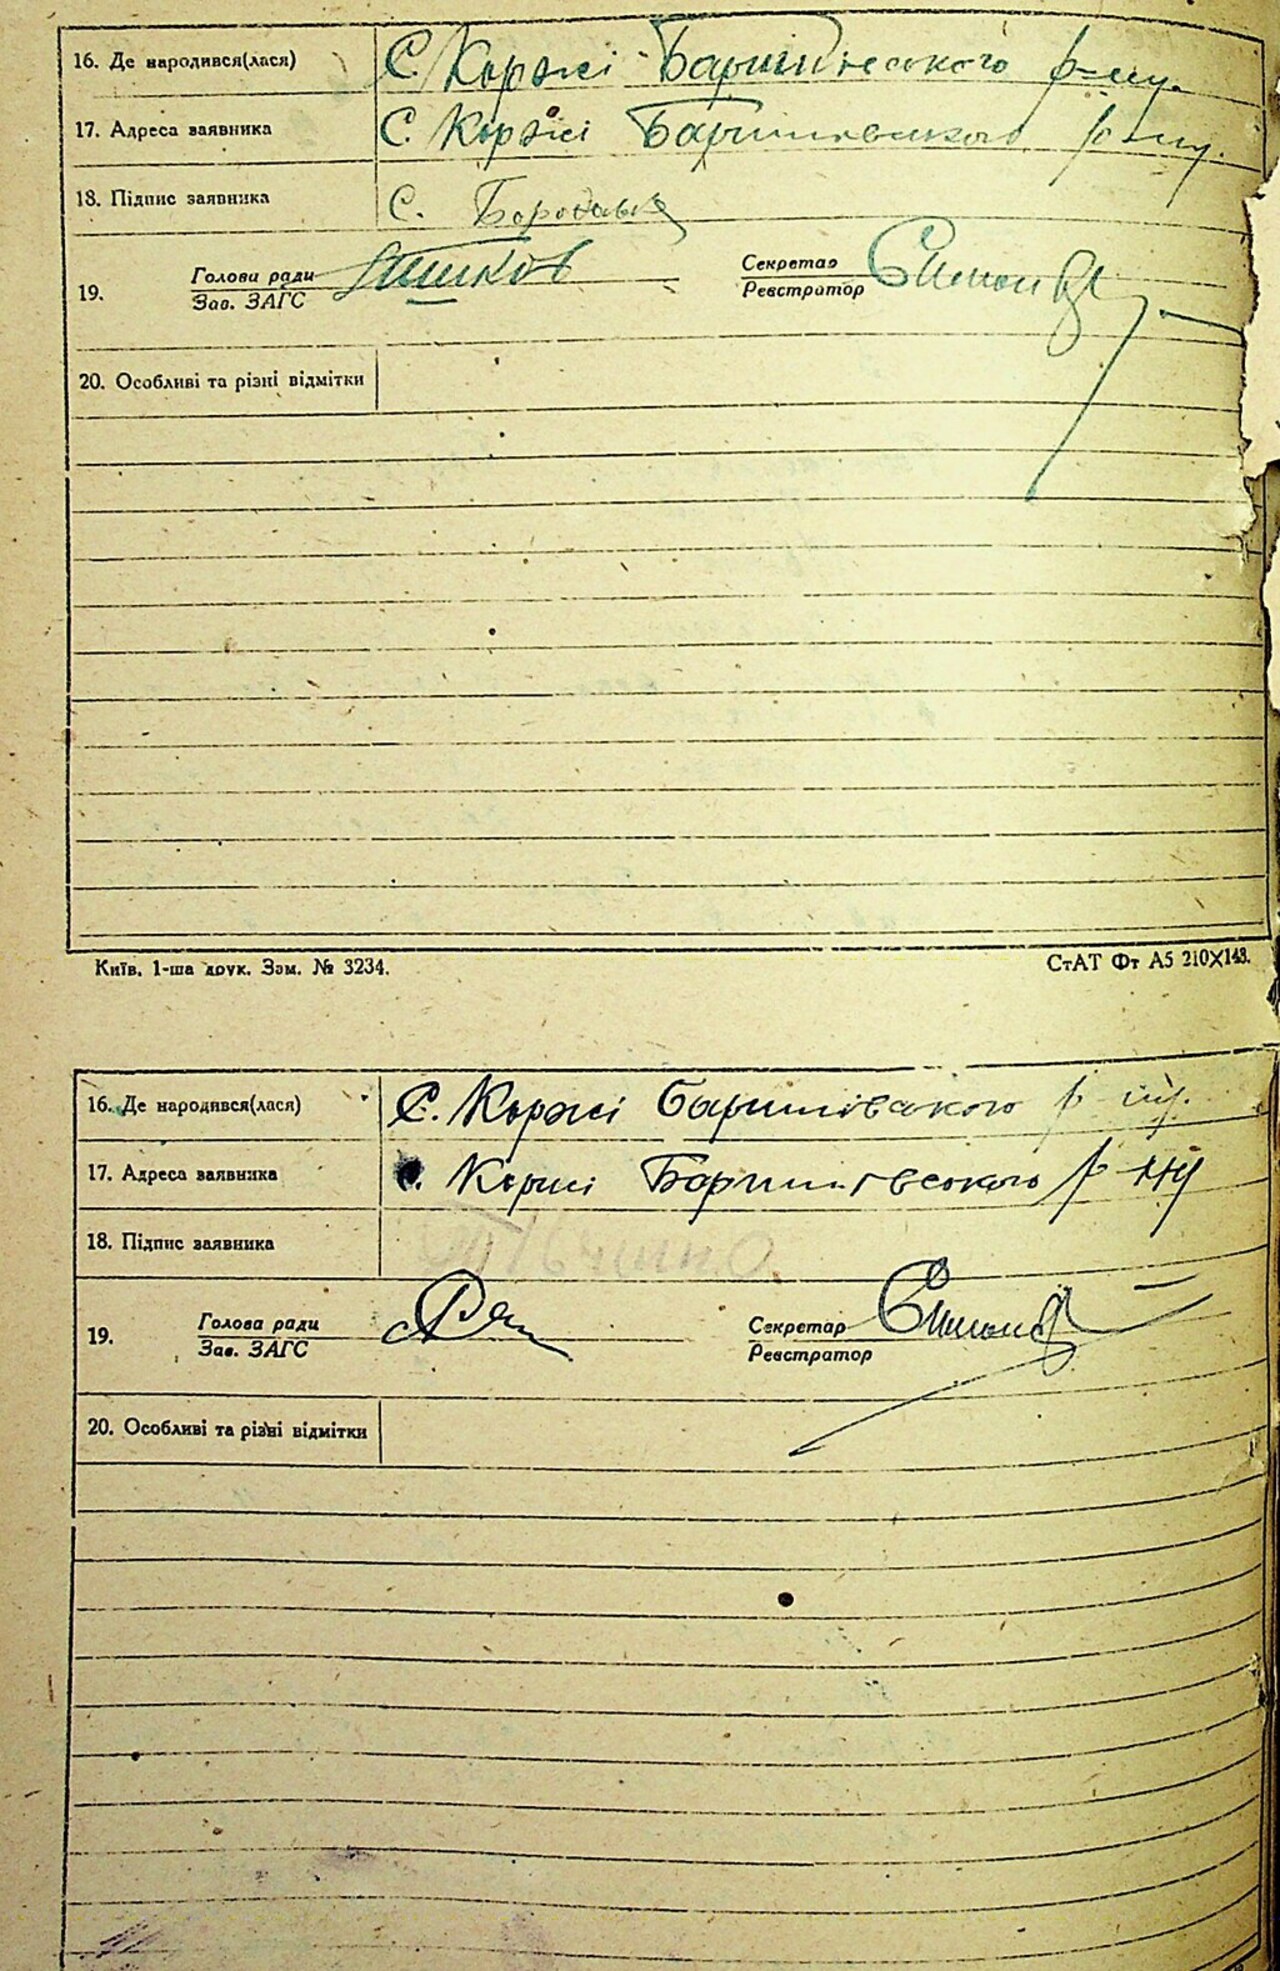 16. Де народився(лася) С. Коржі Баришівського р-ну.
17. Адреса заявника С. Коржі Баришівського р-ну.
18. Підпис заявника С. Бородавка
19. Голова ради Секретар
Зав. ЗАГС Реєстратор
20. Особливі та різні відмітки
Київ. 1-ша друк. Зам. № 3234. СтАТ Фт А5 210×148.
16. Де народився(лася) С. Коржі Баришівського р-ну.
17. Адреса заявника С. Коржі Баришівського р-ну
18. Підпис заявника
19. Голова ради Секретар
Зав. ЗАГС Реєстратор
20. Особливі та різні відмітки